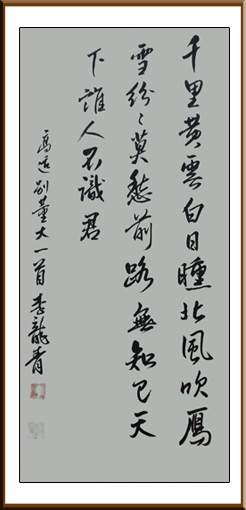 千里黄雲白日曛北風吹鴈
雪紛〻莫愁前路無知己天
下誰人不識君
高適别董大一首 李龍青